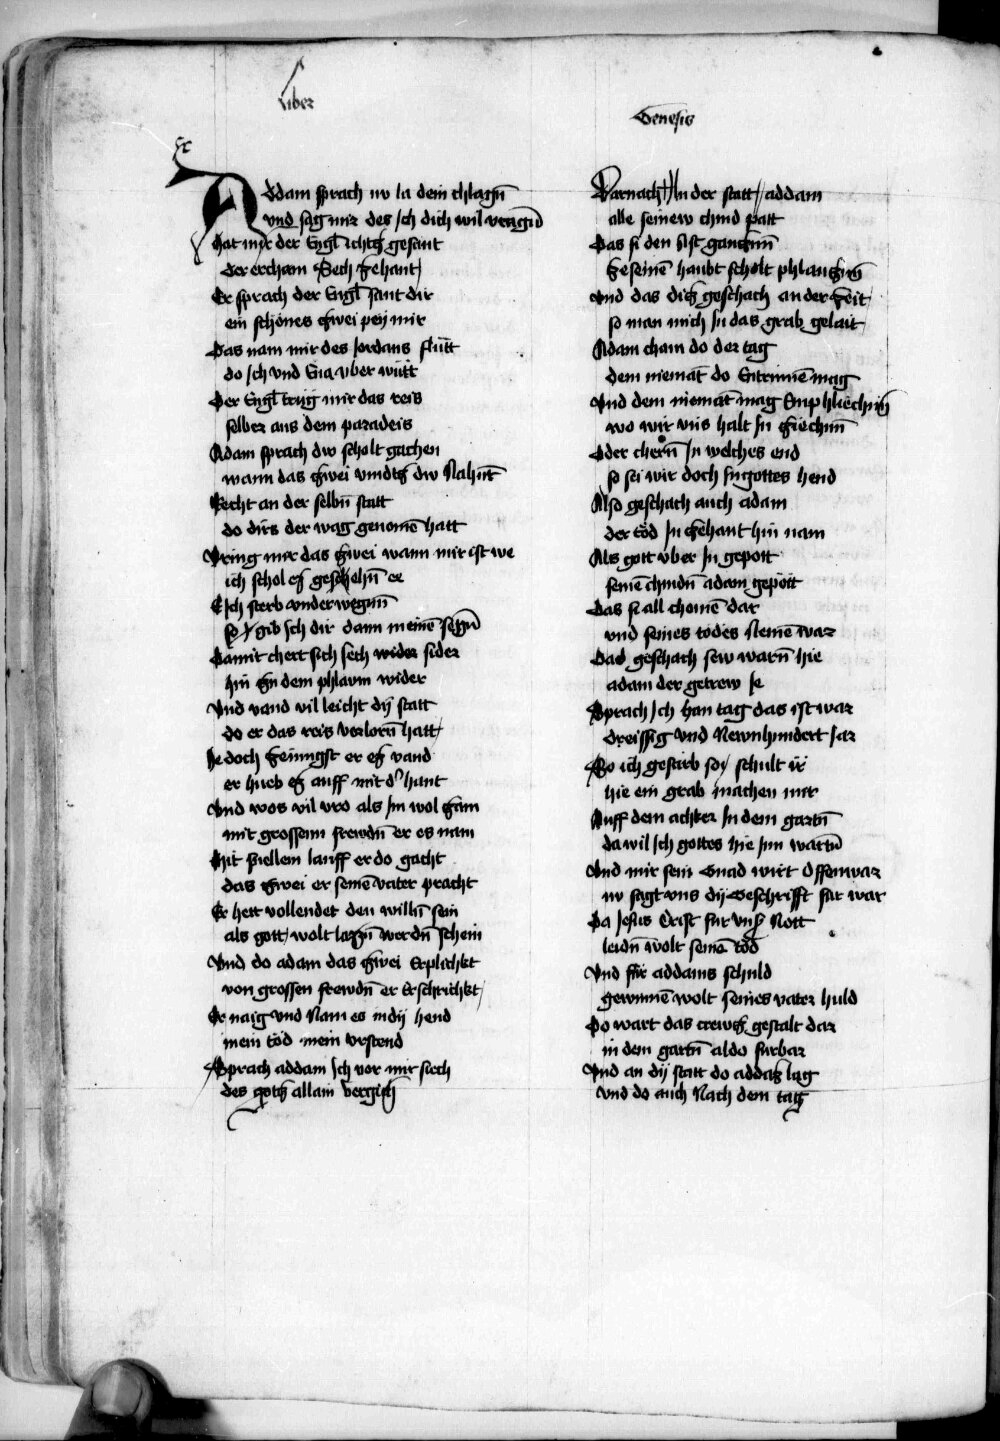 Liber
Genesis
Addam sprach nv la dein chlagn̄
vnd sag mir des Ich dich wil
hat mir der Engl ichtz gesant
der ercham Sech zehant
Er sprach der Engl sant dir
ein schönes zwei pey mir
Das nam mir des Jordans flūtt
do Ich vnd Eua vber wūtt
Der Engl trūg mir das reis
selber aus dem paradeis
Adam sprach dw scholt gachen
wann das zwei vindtz dw Nahint
Recht an der selbn̄ statt
do dirs der wag genomē hatt
Bring mir das zwei wann mir ist we
ich schol ez geschehn̄ ee
E Ich sterb vnderwegnn̄
so gib Ich dir dann meinē segn̄
Damit chert sich sech wider sider
hin zu dem phlaum wider
Vnd vand vil leicht dy statt
do er das reis verlorn̄ hatt
Ie doch zeiungst er ez vand
er hueb ez auff mit der hant
Vnd wos vil vro als Im wol zam
mit grossem frewdn̄ er es nam
Mit snellem lauff er do gacht
das zwei er seinē vater pracht
Er hett vollendet den willn̄ sein
als gott wolt lazzn̄ werdn̄ schein
Vnd do adam das zwei Erplichkt
von grossen frewdn̄ er Erschrichkt
Er naig vnd Nam es in dy hend
mein tod mein vrstend
Sprach addam Ich vor mir siech
des gotz allain vergich
Darnach In der statt addam
alle seinew chind patt
Das si den Ast
ze seinē haubt scholt phlanczn̄
Vnd das dicz geschach an der zeit
so man mich In das grab geleit
Adam cham do der tag
dem niemāt do Entrinnē mag
Vnd dem niemāt mag Emphliechn̄
wo wir vns halt In ziechnn̄
Oder chern̄ In welches end
so sei wir doch In gottes hend
Also geschach auch adam
der tod In zehant hin nam
Als gott vber In gepott
seinē chindn̄ adam gepott
Das si all chomē dar
vnd seines todes Nemē war
Das geschach sew warn̄ hie
adam der getrew Ie
Sprach Ich han tag das ist war
dreissig vnd Newnhundert Jar
So ich gestirb so schult ir
hie ein grab machen mir
Auff dem achker In dem gartn̄
da wil Ich gottes hie Inn wartn̄
Vnd mir sein Gnad wirt Offenwar
nv sagt vns dy Geschrifft fur war
Da Jesus Crist fur vnser Nott
leidn̄ wolt seinē tod
Vnd fur addams schuld
gewinnē wolt seines vater huld
Do wart das crewtz gestalt dar
in dem gartn̄ aldo furbar
Vnd an dy statt do addam lag
vnd do auch Nach dem tag